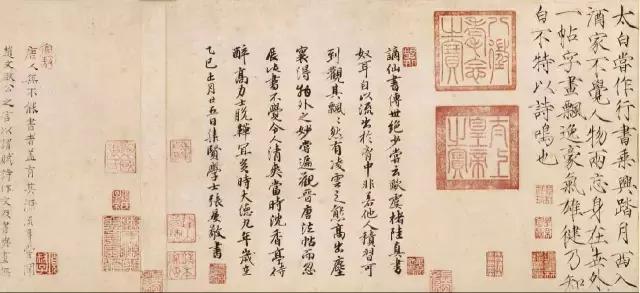 太白嘗作行書乘興踏月西入
酒家不覺人物兩忘身在世外
一帖字畫飄逸豪氣雄健乃知
白不特以詩鳴也
八徵耄念之寶
太上皇帝之寶
謫仙書傳世絕少嘗云歐虞褚陸真書
奴耳自以流出於胸中非若他人積習可
到觀其飄飄然有凌雲之態高出塵
寰得物外之妙嘗遍觀晉唐法帖而忽
展此書不覺令人清爽當時沈香亭待
醉高力士脫靴宜矣時大德九年歲在
乙巳上月廿五日集賢學士張晏敬書
唐人無不能書者蓋有其
趙文敏公之言以謂賦詩作文及書